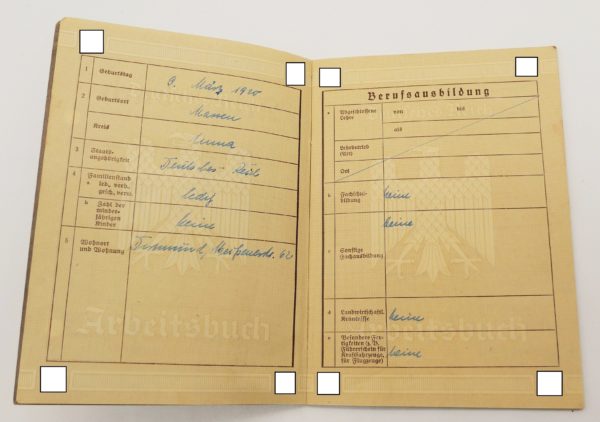 1 Geburtstag 9. März 1920
2 Geburtsort Massen
Kreis Unna
3 Staats-
angehörigkeit Deutsches Reich
4 Familienstand
a led., verh.,
gesch., verw. ledig
b Zahl der
minder-
jährigen
Kinder keine
5 Wohnort
und Wohnung Dortmund, 62
Arbeitsbuch
Berufsausbildung
a Abgeschlossene
Lehre von bis
als
Lehrbetrieb
(Art)
Ort
b Fachschul-
bildung keine
c Sonstige
Fachausbildung keine
Arbeitsbuch
d Landwirtschaftl.
Kenntnisse keine
e Besondere Fer-
tigkeiten (z.B.
Führerschein für
Kraftfahrzeuge,
für Flugzeuge) keine